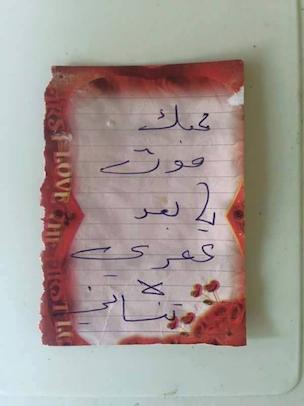 محبك
موت
يا بعد
عمري
لا
تنساني
LOVE